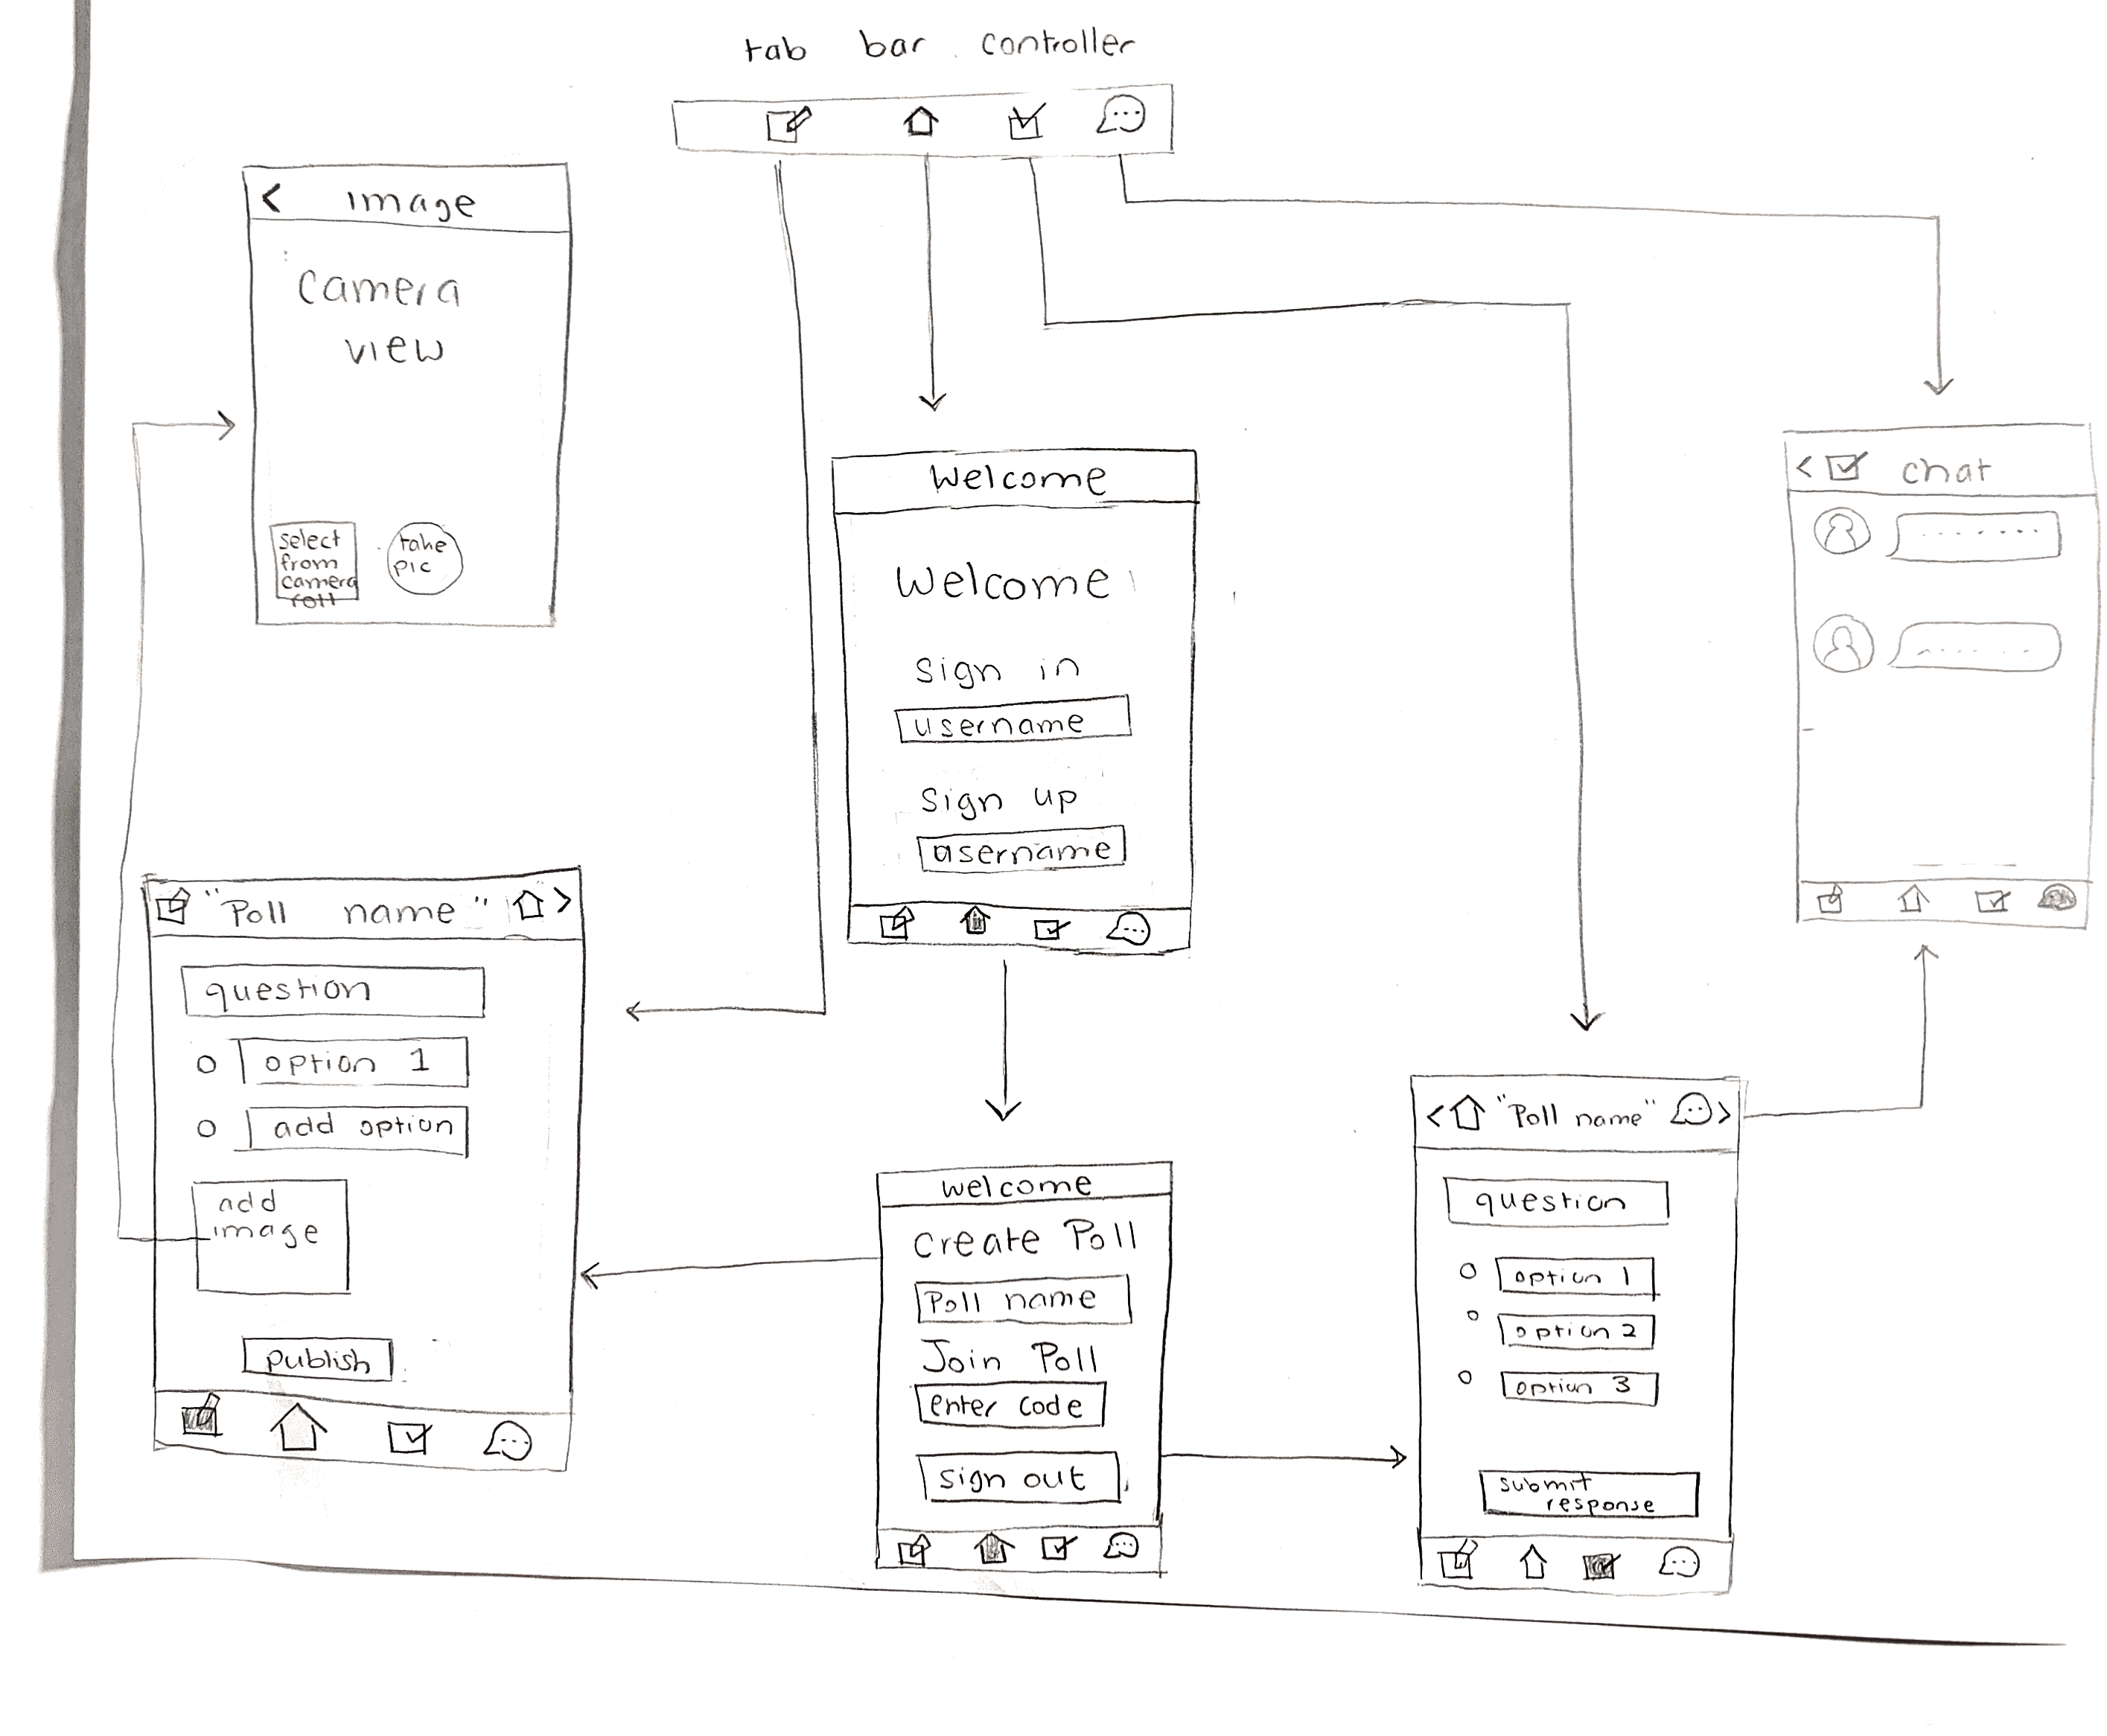 tab bar controller
< Image
camera
view
select
from
camera
roll
take
pic
Welcome
Welcome
Sign in
username
Sign up
username
< chat
"Poll name" >
question
option 1
add option
add
image
publish
welcome
Create Poll
Poll name
Join Poll
enter code
sign out
< "Poll name" >
question
option 1
option 2
option 3
submit
response